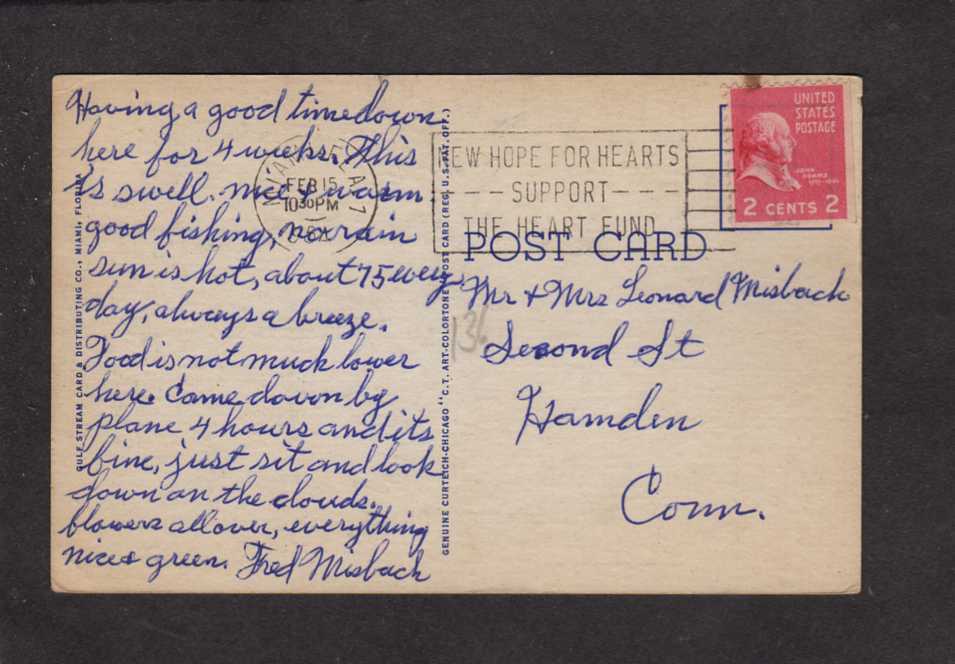 Having a good time down
here for 4 weeks. This
is swell. nice & warm
good fishing, no rain
sun is hot, about 75 every
day, always a breeze.
Food is not much lower
here. Came down by
plane 4 hours and its
fine, just sit and look
down on the clouds.
flowers all over, everything
nice & green. Fred Misbach
GULF STREAM CARD & DISTRIBUTING CO., MIAMI, FLORIDA
GENUINE CURTEICH-CHICAGO "C.T. ART-COLORTONE" POST CARD (REG. U.S. PAT. OFF.)
MIAMI, FLA.
FEB 15
10 30 PM
NEW HOPE FOR HEARTS
SUPPORT
THE HEART FUND
UNITED
STATES
POSTAGE
JOHN
ADAMS
2 CENTS 2
POST CARD
Mr & Mrs Leonard Misbach
Second St
Hamden
Conn.